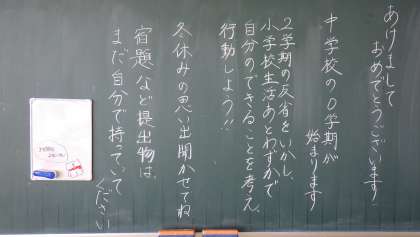 あけまして
おめでとうございます
中学校の0学期が
始まります
2学期の反省をいかし、
小学校生活あとわずかで
自分のできることを考え、
行動しよう!!
冬休みの思い出聞かせてね
宿題など提出物は、
まだ自分で持っていて
ください